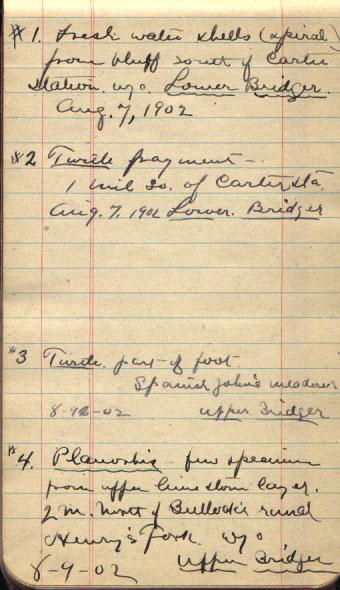 #1. Fresh water shells (spiral)
from bluff south of Carter
Station. Wyo. Lower Bridger.
Aug. 7, 1902
#2 Turtle fragment –
1 mile So. of Carter Sta.
Aug. 7. 1902 Lower. Bridger
#3 Turtle. part of foot
Spanish John's meadow
02 Upper Bridger
#4. Planorbis – few specimen
from upper lime stone layer.
2 m. North of Bullock's
Henry's Fork. Wyo
8-9-02 Upper Bridger